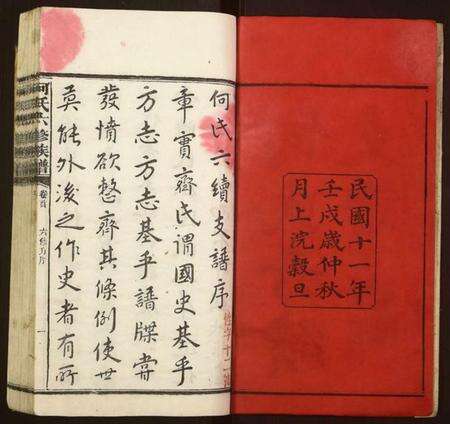 民國十一年
壬戌歲仲秋
月上浣穀旦
何氏六續支譜序
章實齋氏謂國史基乎
方志方志基乎譜牒嘗
發憤欲整齊其條例使世
莫能外後之作史者有所
何氏六修族譜
卷首